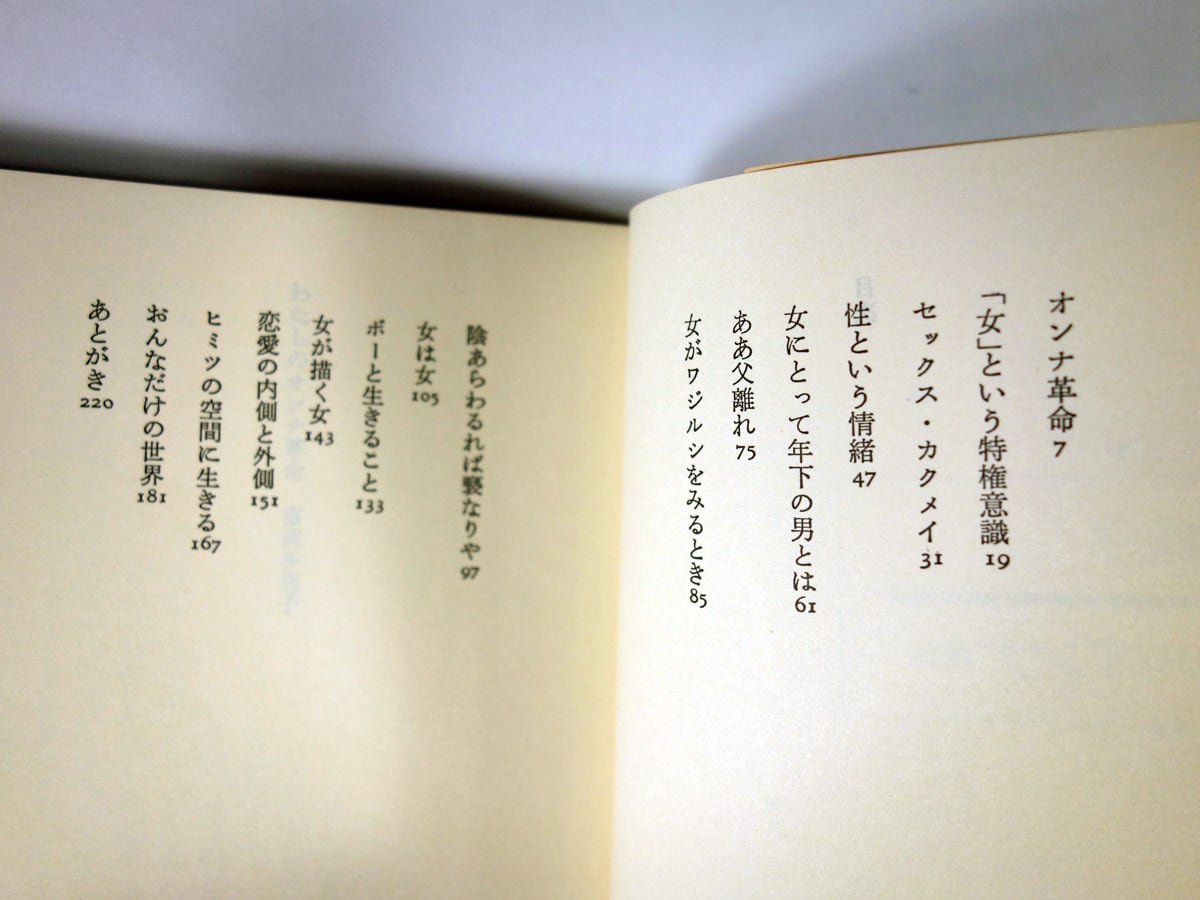 オンナ革命 7
「女」という特権意識 19
セックス・カクメイ 31
性という情緒 47
女にとって年下の男とは 61
ああ父離れ 75
女がワジルシをみるとき 85
陰あらわるれば褻なりや 97
女は女 105
ボーと生きること 133
女が描く女 143
恋愛の内側と外側 151
ヒミツの空間に生きる 167
おんなだけの世界 181
あとがき 220